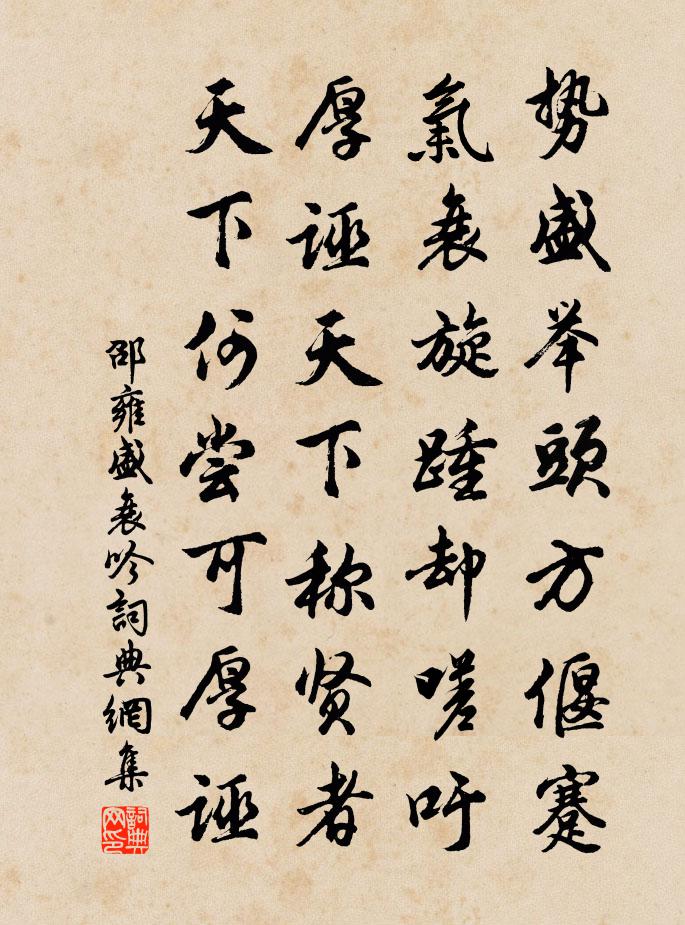 势盛举頭方偃蹇
氣衰旋踵却嗟吁
厚誣天下称贤者
天下何尝可厚誣
邵雍盛衰吟詞典網集
詞典网印